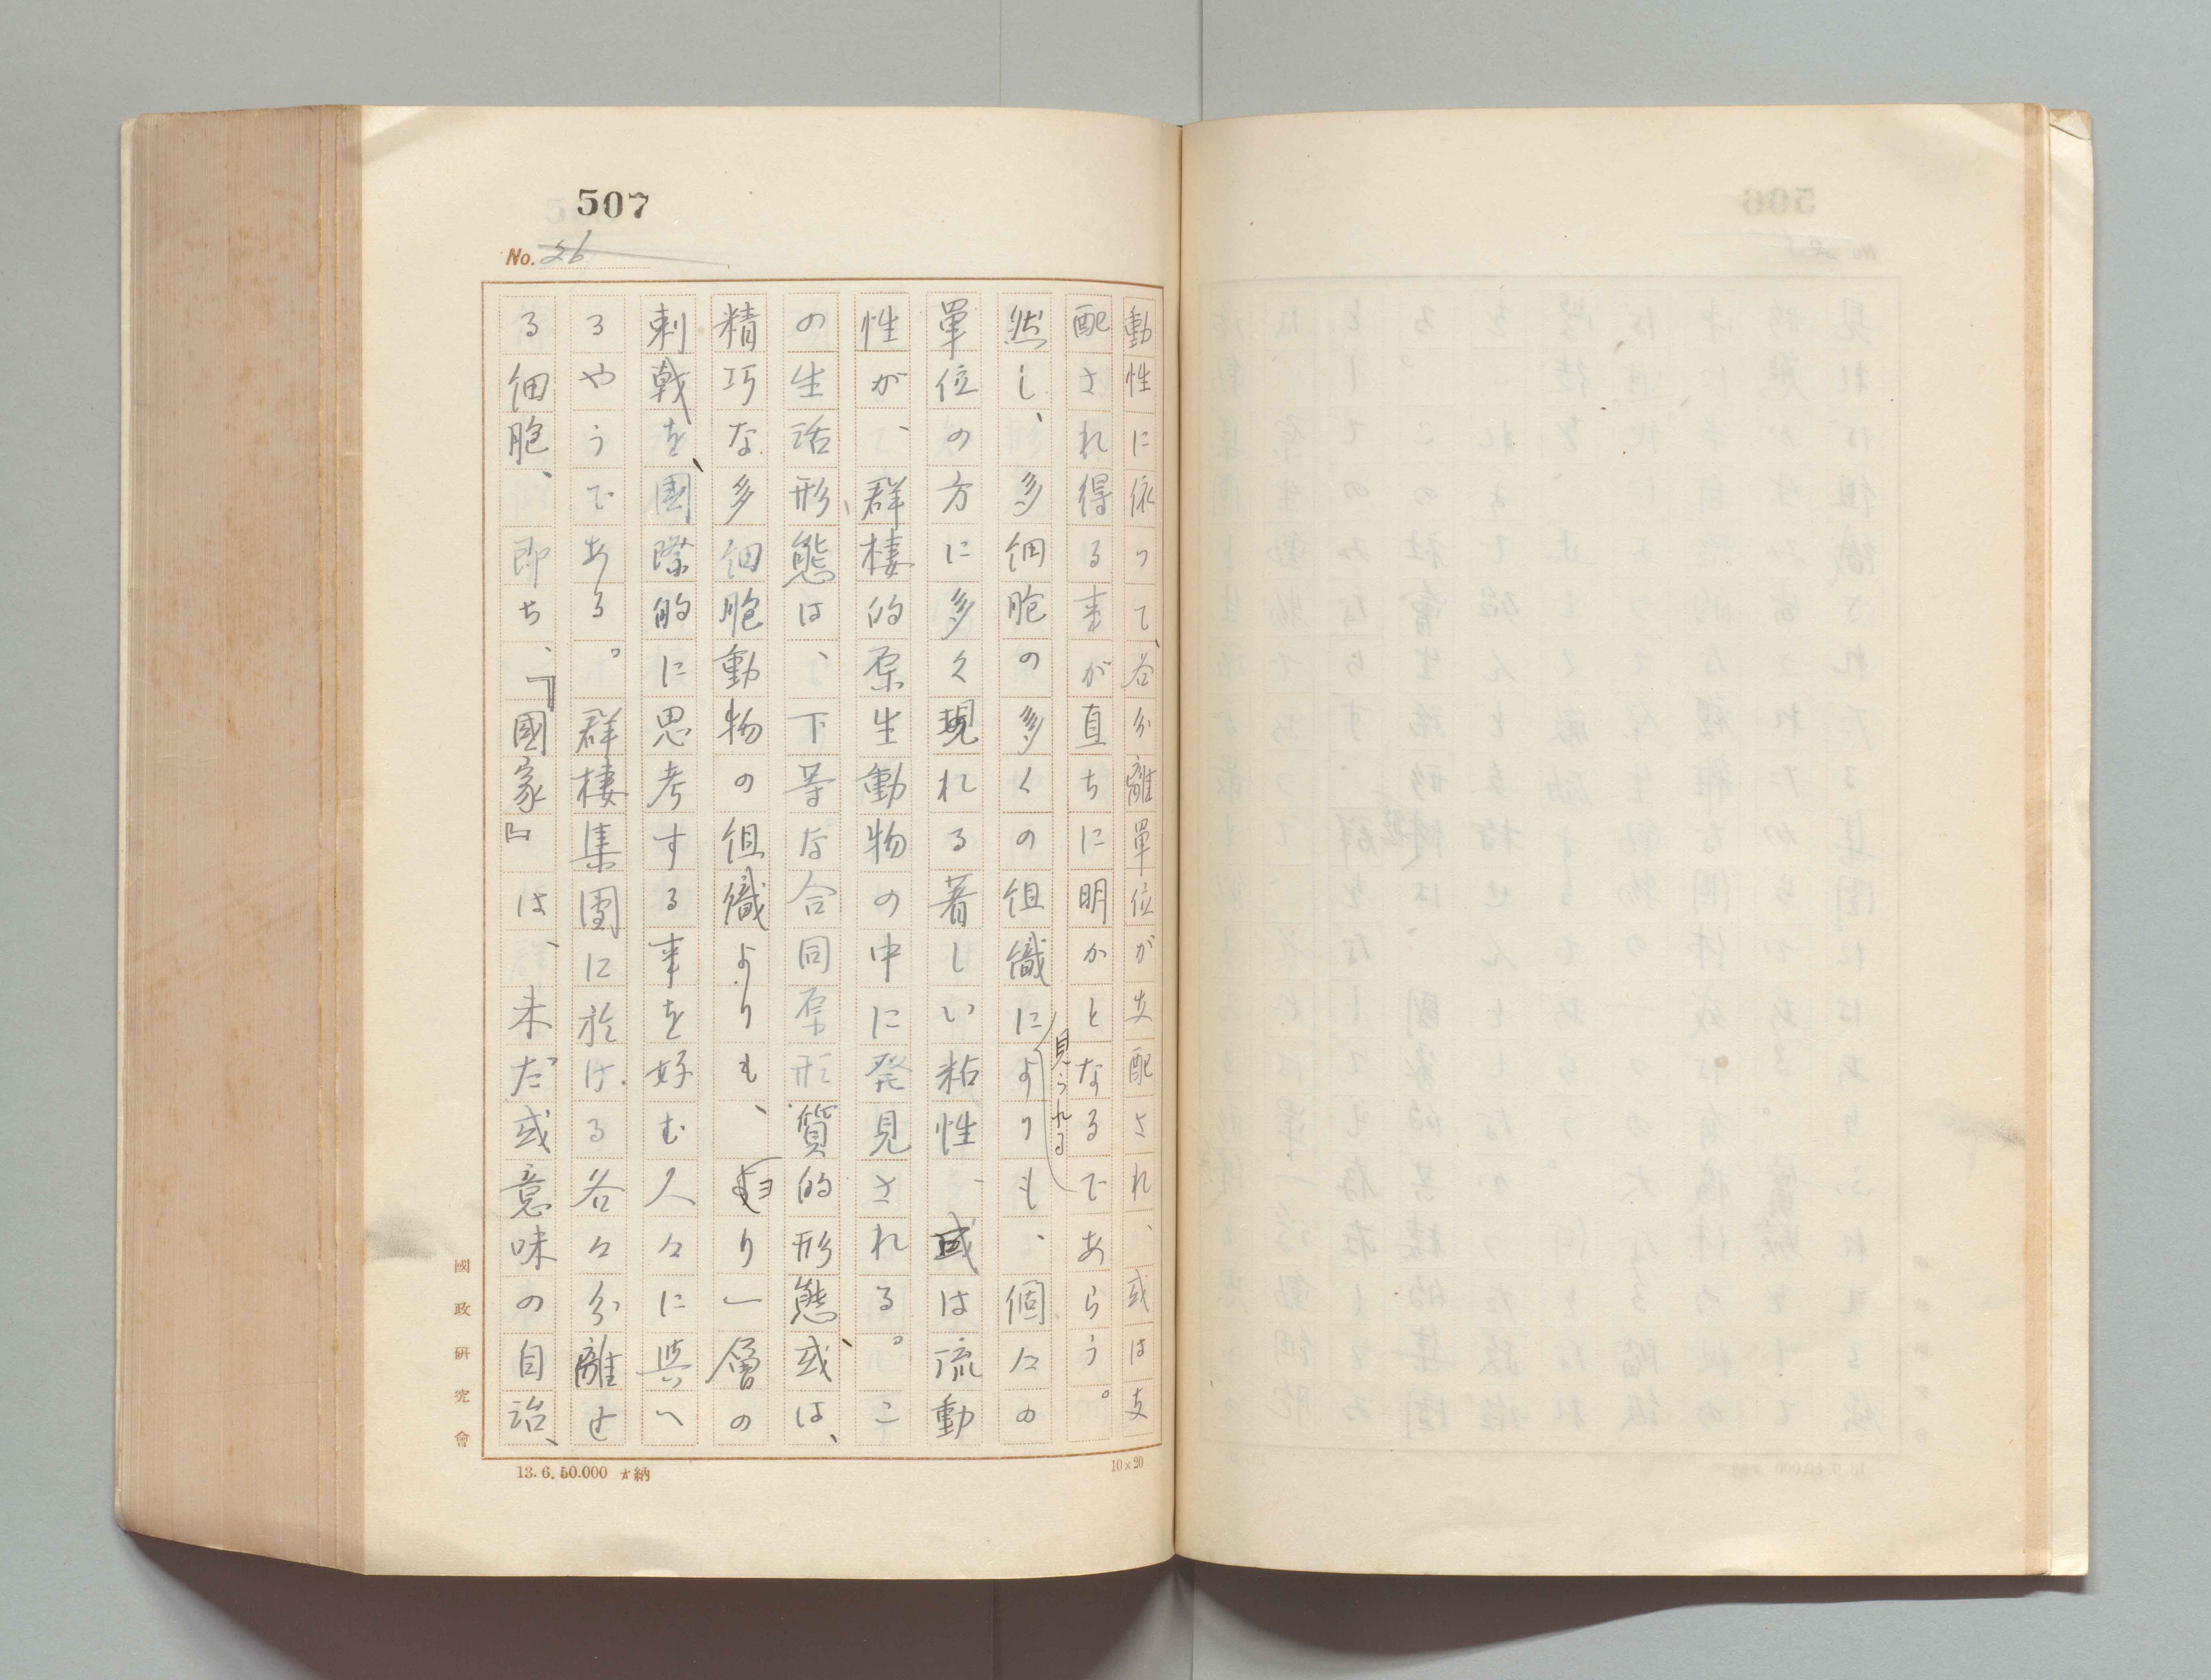 507
No. 26
動性に依つて、各分離單位が支配され、或は支
配され得る事が直ちに明かとなるであらう。
然し、多細胞の多くの組織に見られるよりも、個々の
單位の方に多く現れる著しい粘性、或は流動
性が、群棲的原生動物の中に発見される。こ
の生活形態は、下等な合同原形質的形態或は、
精巧な多細胞動物の組織よりも、より一層の
刺戟を、國際的に思考する事を好む人々に與へ
るやうである。群棲集團に於ける各々分離せ
る細胞、即ち、『國家』は、未だ或意味の自治、
國政研究會
13.6.50.000 納
10×20